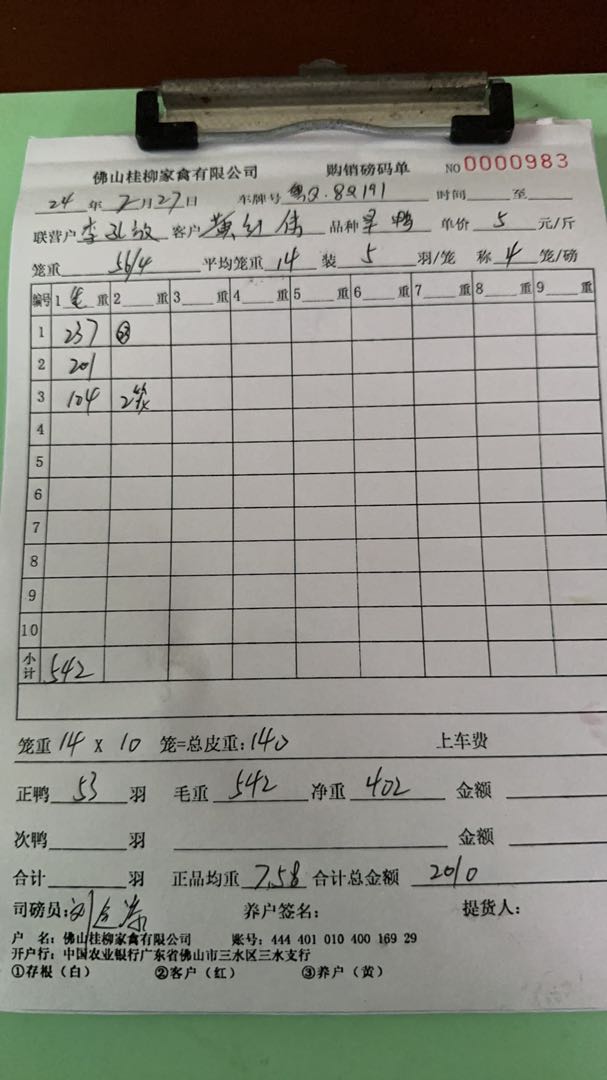 佛山桂柳家禽有限公司 购销磅码单 NO 0000983
24年2月27日 车牌号 粤Q.8Q191 时间 至
联营户 李 客户 黄红伟 品种 旱鸭 单价 5 元/斤
笼重 56/4 平均笼重 14 装 5 羽/笼 称 4 笼/磅
编号 1 毛 重 2 重 3 重 4 重 5 重 6 重 7 重 8 重 9 重
1 237
2 201
3 104 2笼
4
5
6
7
8
9
10
小计 542
笼重 14 X 10 笼=总皮重: 140 上车费
正鸭 53 羽 毛重 542 净重 402 金额
次鸭 羽 金额
合计 羽 正品均重 7.58 合计总金额 2010
司磅员: 刘 养户签名: 提货人:
户 名: 佛山桂柳家禽有限公司 账号: 444 401 010 400 169 29
开户行: 中国农业银行广东省佛山市三水区三水支行
①存根（白） ②客户（红） ③养户（黄）